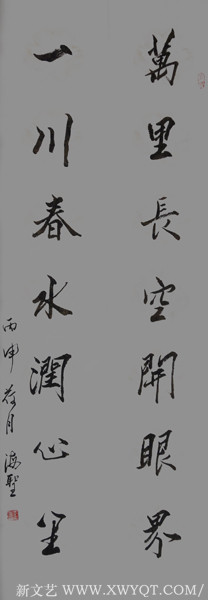 萬里長空開眼界
一川春水潤心
丙申荷月 海聖
新文艺/WWW.XWYQT.COM/